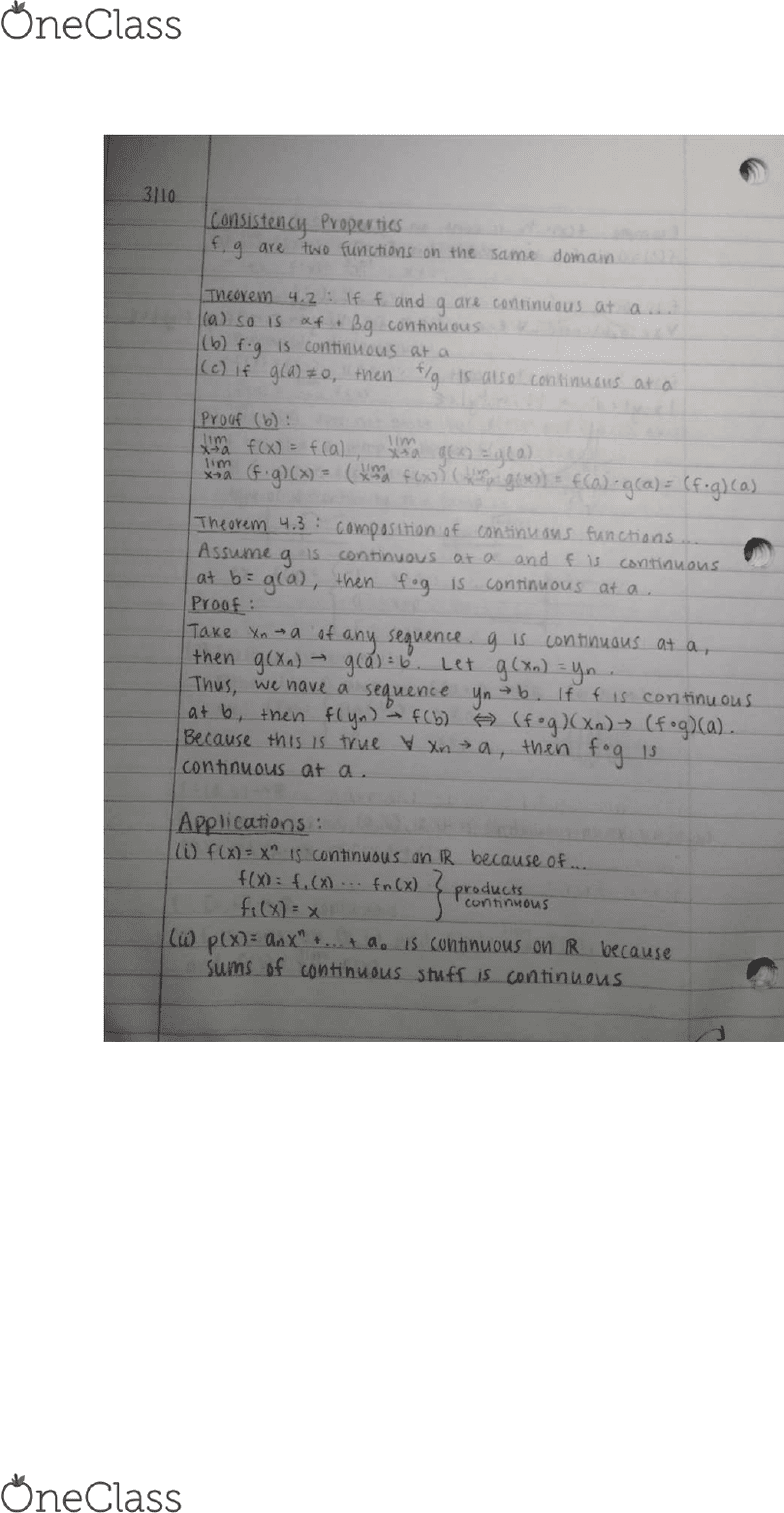 OneClass
3/10
Consistency Properties
f, g are two functions on the same domain
Theorem 4.2: If f and g are continuous at a...
(a) so is αf + βg continuous
(b) f·g is continuous at a
(c) if g(a)≠0, then f/g is also continuous at a
Proof (b):
lim x→a f(x) = f(a), lim x→a g(x) = g(a)
lim x→a (f·g)(x) = (lim x→a f(x))(lim x→a g(x)) = f(a)·g(a) = (f·g)(a)
Theorem 4.3: composition of continuous functions...
Assume g is continuous at a and f is continuous
at b = g(a), then f∘g is continuous at a.
Proof:
Take xn→a of any sequence. g is continuous at a,
then g(xn) → g(a) = b. Let g(xn) = yn.
Thus, we have a sequence yn→b. If f is continuous
at b, then f(yn) → f(b) ⇔ (f∘g)(xn) → (f∘g)(a).
Because this is true ∀ xn→a, then f∘g is
continuous at a.
Applications:
(i) f(x) = xⁿ is continuous on ℝ because of...
f(x) = f₁(x) ... fn(x) } products
f₁(x) = x } continuous
(ii) p(x) = anxⁿ + ... + a₀ is continuous on ℝ because
sums of continuous stuff is continuous
OneClass